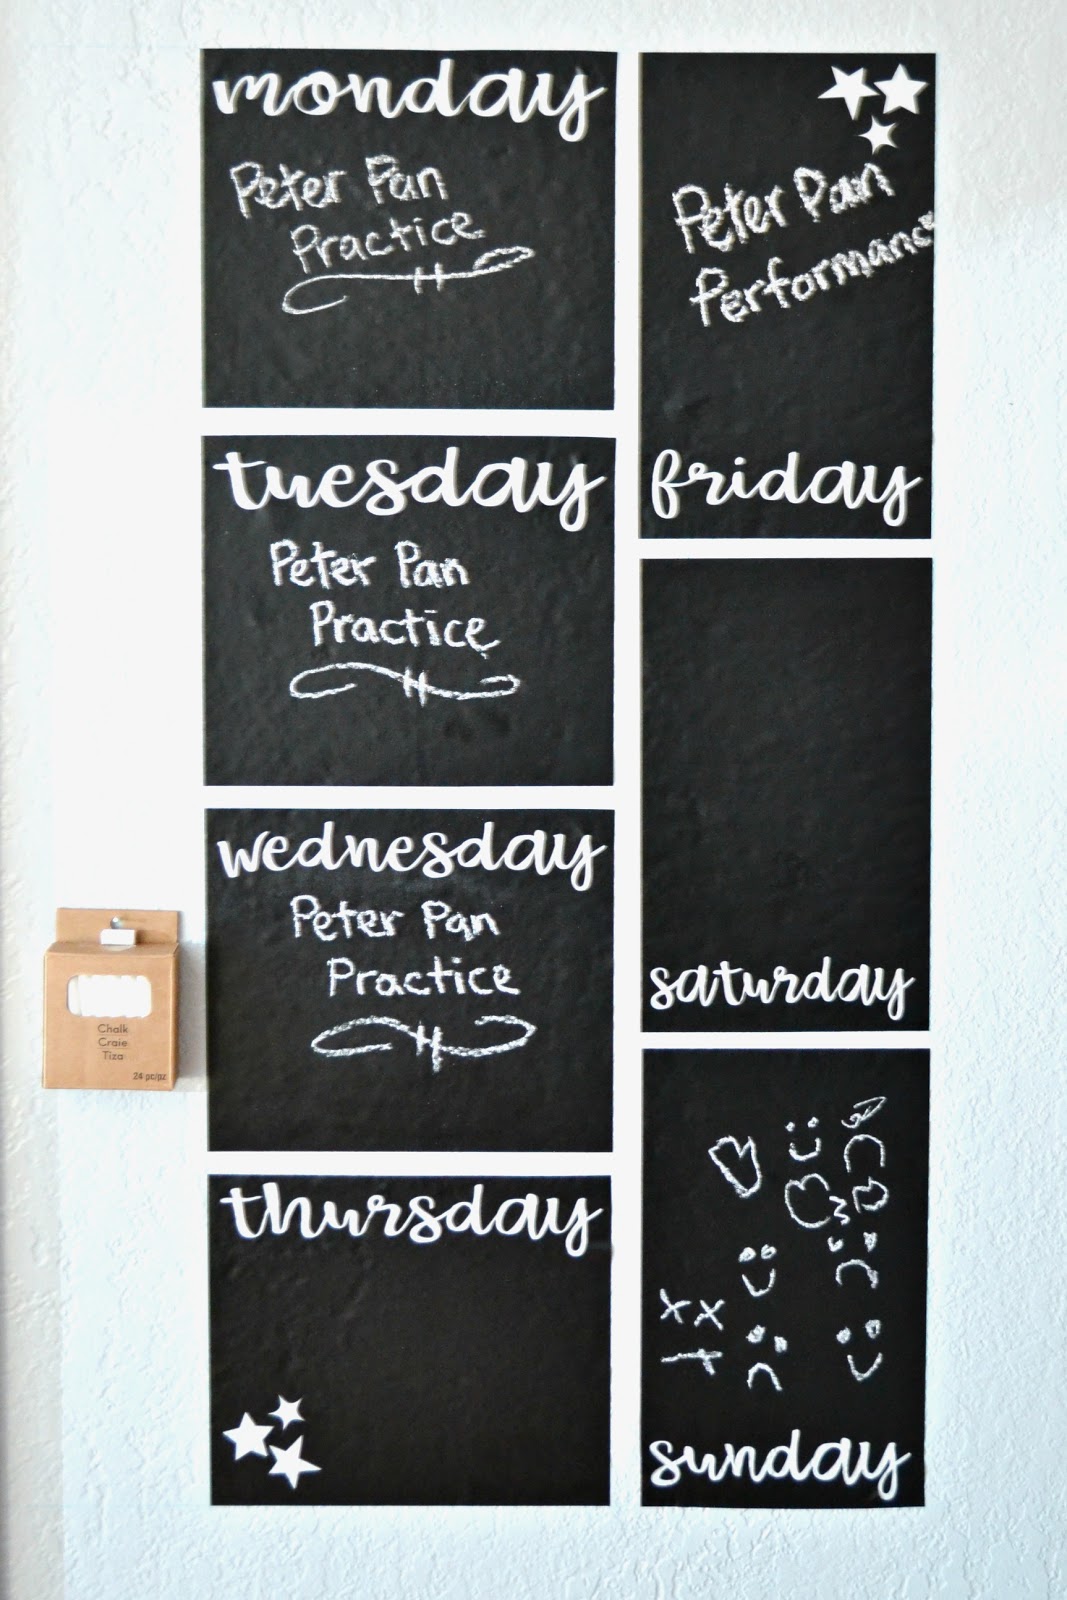 monday
Peter Pan
Practice
tuesday
Peter Pan
Practice
wednesday
Peter Pan
Practice
thursday
Peter Pan
Performance
friday
saturday
sunday
Chalk
Craie
Tiza
24 pc/pz